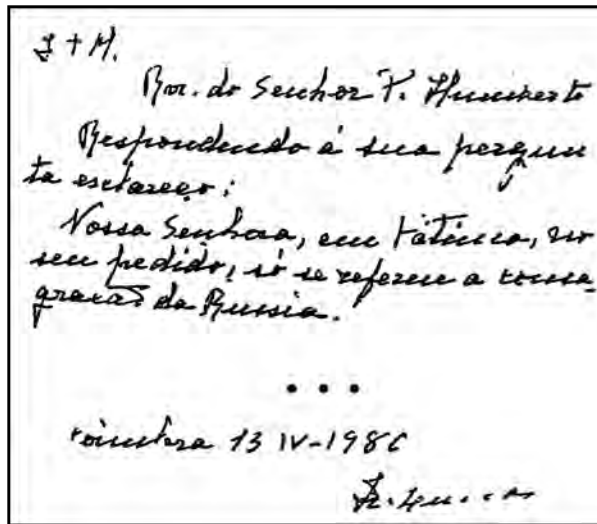 J + M.
Rev. do Senhor P. Humberto
Respondendo á sua pergun
ta esclareço:
Nossa Senhora, em Fátima, no
seu pedido, só se referiu a consa
gração da Russia.
...
Coimbra 13 IV-1980